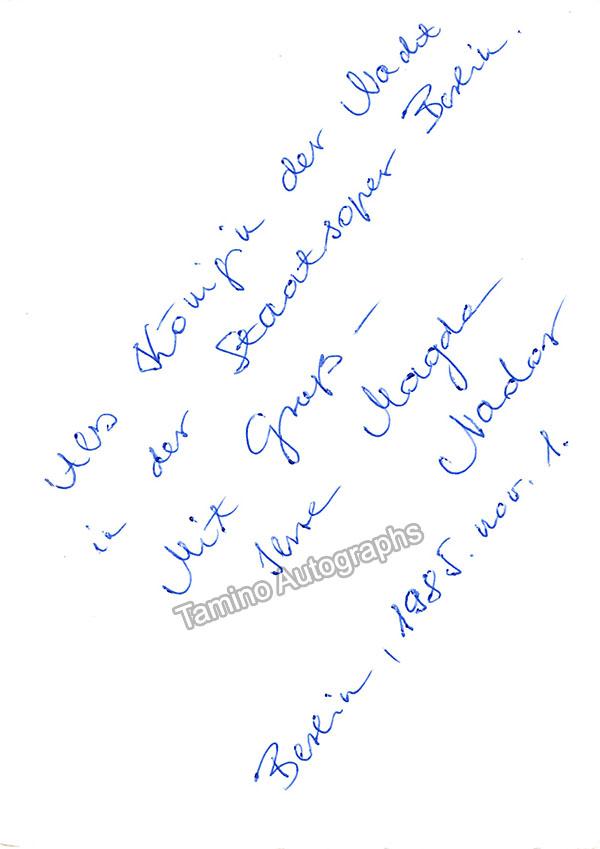 Als Königin der Nacht
in der Staatsoper Berlin.
Mit Gruß –
Ihre Magda
Nador
Berlin, 1985. nov. 1.
Tamino Autographs